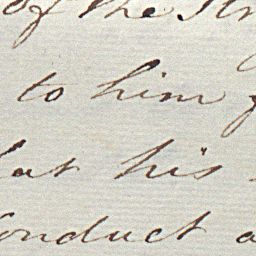 of the
to him
his
conduct a